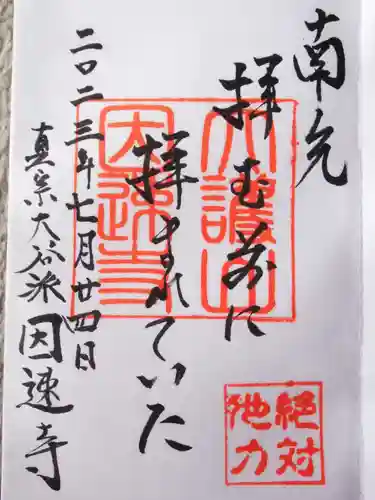 南無
拝む前に
拝まれていた
二〇二三年七月廿四日
真宗大谷派 因速寺
因速寺
絶対
他力